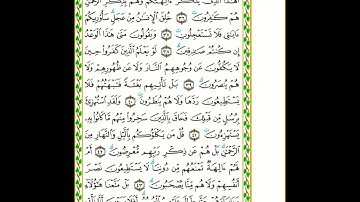 أَهَٰذَا ٱلَّذِى يَذْكُرُ ءَالِهَتَكُمْ وَهُم بِذِكْرِ ٱلرَّحْمَٰنِ
هُمْ كَٰفِرُونَ ٣٦ خُلِقَ ٱلْإِنسَٰنُ مِنْ عَجَلٍ سَأُو۟رِيكُمْ
ءَايَٰتِى فَلَا تَسْتَعْجِلُونِ ٣٧ وَيَقُولُونَ مَتَىٰ هَٰذَا ٱلْوَعْدُ
إِن كُنتُمْ صَٰدِقِينَ ٣٨ لَوْ يَعْلَمُ ٱلَّذِينَ كَفَرُوا۟ حِينَ
لَا يَكُفُّونَ عَن وُجُوهِهِمُ ٱلنَّارَ وَلَا عَن ظُهُورِهِمْ وَلَا
هُمْ يُنصَرُونَ ٣٩ بَلْ تَأْتِيهِم بَغْتَةً فَتَبْهَتُهُمْ فَلَا
يَسْتَطِيعُونَ رَدَّهَا وَلَا هُمْ يُنظَرُونَ ٤٠ وَلَقَدِ ٱسْتُهْزِئَ
بِرُسُلٍ مِّن قَبْلِكَ فَحَاقَ بِٱلَّذِينَ سَخِرُوا۟ مِنْهُم مَّا كَانُوا۟ بِهِۦ
يَسْتَهْزِءُونَ ٤١ قُلْ مَن يَكْلَؤُكُم بِٱلَّيْلِ وَٱلنَّهَارِ مِنَ
ٱلرَّحْمَٰنِ بَلْ هُمْ عَن ذِكْرِ رَبِّهِم مُّعْرِضُونَ ٤٢ أَمْ
لَهُمْ ءَالِهَةٌ تَمْنَعُهُم مِّن دُونِنَا لَا يَسْتَطِيعُونَ نَصْرَ
أَنفُسِهِمْ وَلَا هُم مِّنَّا يُصْحَبُونَ ٤٣ بَلْ مَتَّعْنَا هَٰٓؤُلَآءِ